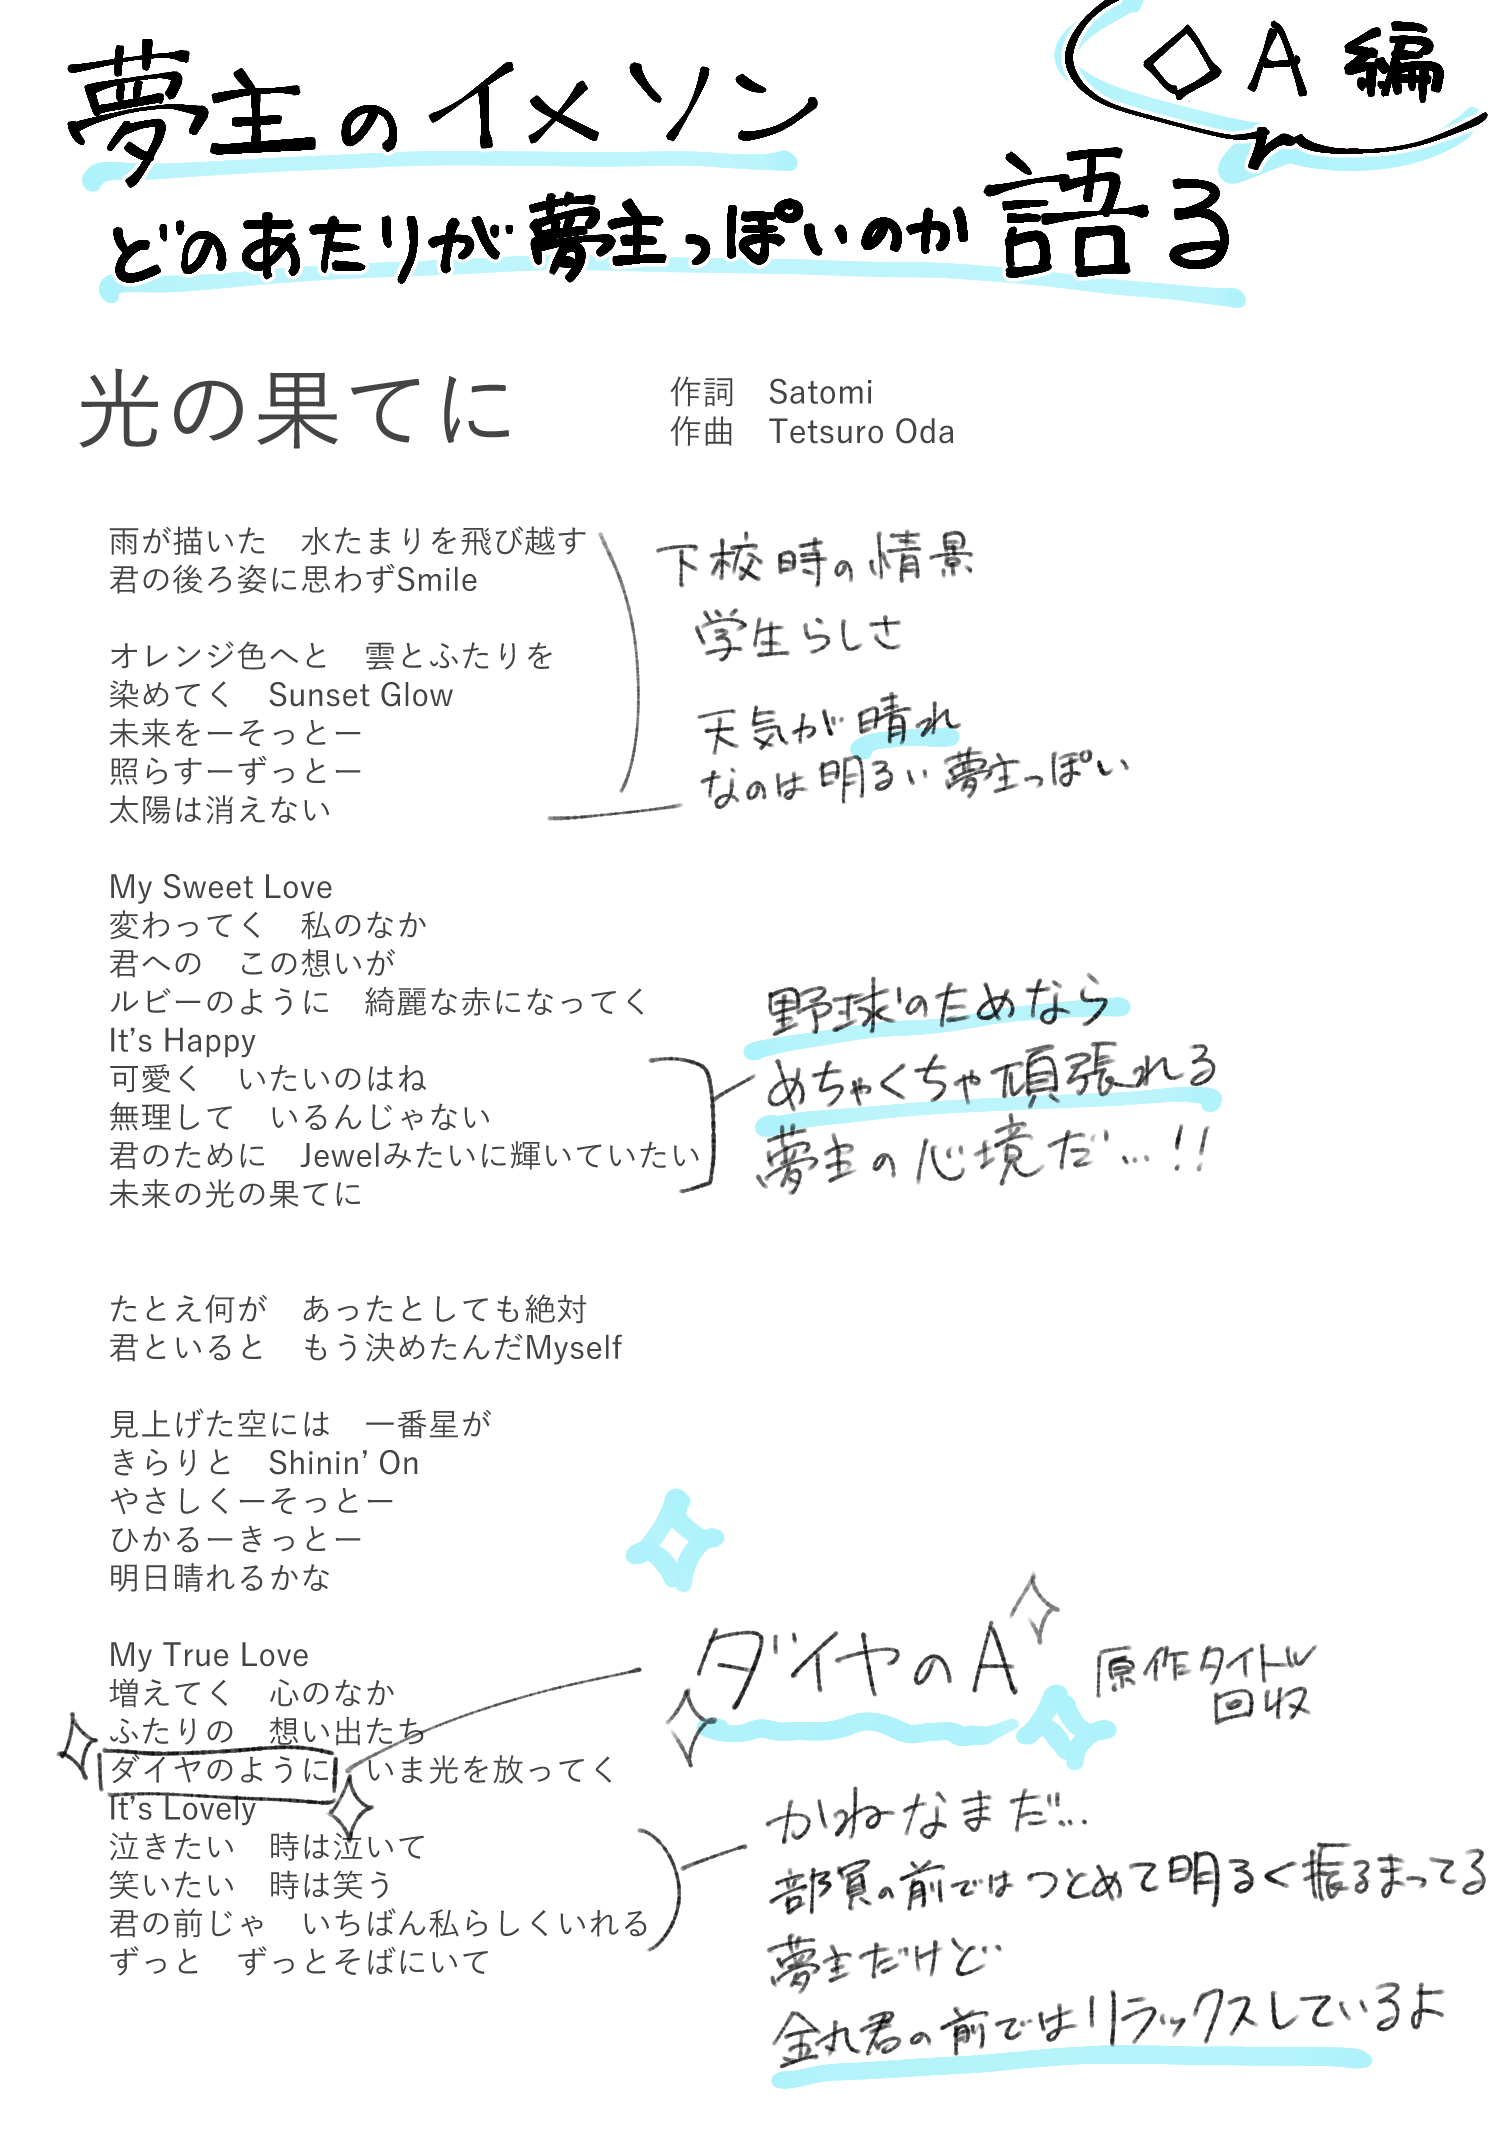 ◇A編
夢主のイメソン
どのあたりが夢主っぽいのか語る
光の果てに
作詞　Satomi
作曲　Tetsuro Oda
雨が描いた　水たまりを飛び越す
君の後ろ姿に思わずSmile
オレンジ色へと　雲とふたりを
染めてく　Sunset Glow
未来をーそっとー
照らすーずっとー
太陽は消えない
下校時の情景
学生らしさ
天気が晴れ
なのは明るい夢主っぽい
My Sweet Love
変わってく　私のなか
君への　この想いが
ルビーのように　綺麗な赤になってく
It's Happy
可愛く　いたいのはね
無理して　いるんじゃない
君のために　Jewelみたいに輝いていたい
未来の光の果てに
野球のためなら
めちゃくちゃ頑張れる
夢主の心境だ…!!
たとえ何が　あったとしても絶対
君といると　もう決めたんだMyself
見上げた空には　一番星が
きらりと　Shinin' On
やさしくーそっとー
ひかるーきっとー
明日晴れるかな
My True Love
増えてく　心のなか
ふたりの　想い出たち
ダイヤのように　いま光を放ってく
It's Lovely
泣きたい　時は泣いて
笑いたい　時は笑う
君の前じゃ　いちばん私らしくいれる
ずっと　ずっとそばにいて
ダイヤのA
原作タイトル
回収
かねなまだ…
部員の前ではつとめて明るく振るまってる
夢主だけど
金丸君の前ではリラックスしているよ